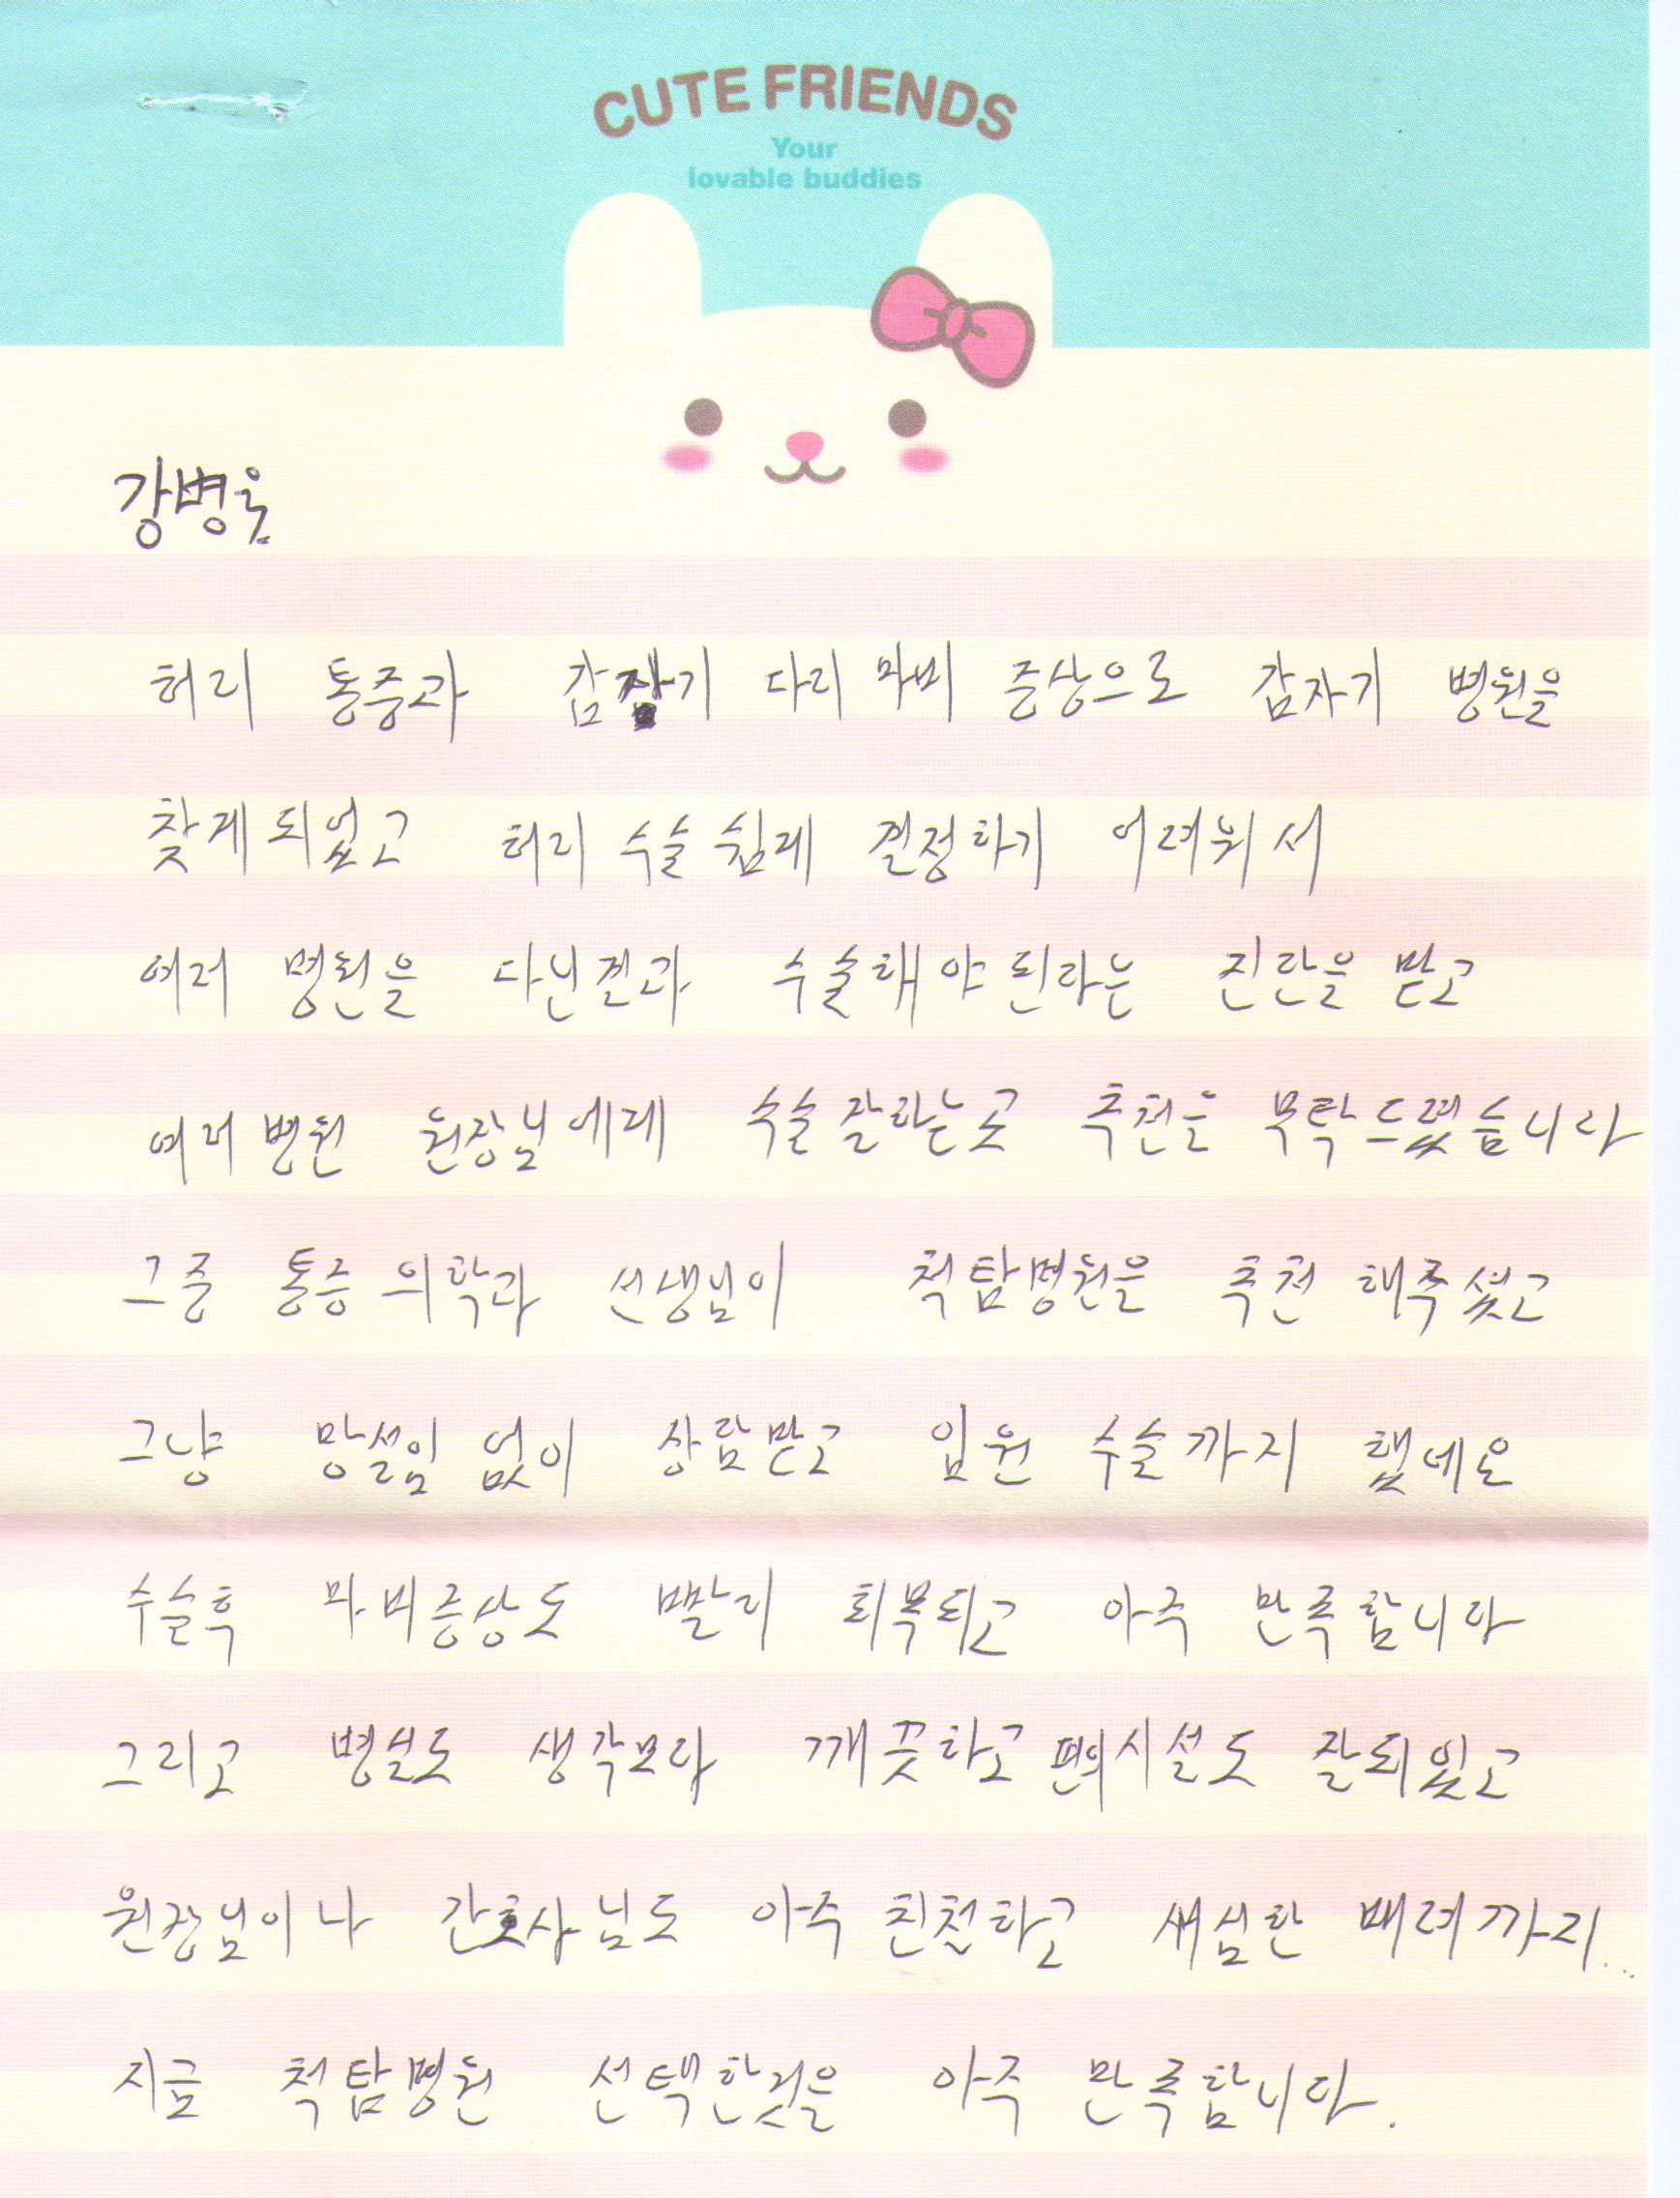 CUTE FRIENDS
Your
lovable buddies
강병욱
허리 통증과 갑자기 다리 마비 증상으로 갑자기 병원을
찾게 되었고 허리 수술 쉽게 결정하기 어려워서
여러 병원을 다닌결과 수술해야 된다는 진단을 받고
여러 병원 원장님에게 수술 잘하는곳 추천을 부탁드렸습니다
그중 통증 의학과 선생님이 척탑병원을 추천 해주셨고
그냥 망설임 없이 상담받고 입원 수술까지 했네요
수술후 마비증상도 빨리 회복되고 아주 만족합니다
그리고 병실도 생각보다 깨끗하고 편의시설도 잘되있고
원장님이나 간호사님도 아주 친절하고 세심한 배려까지...
지금 척탑병원 선택한것은 아주 만족합니다.